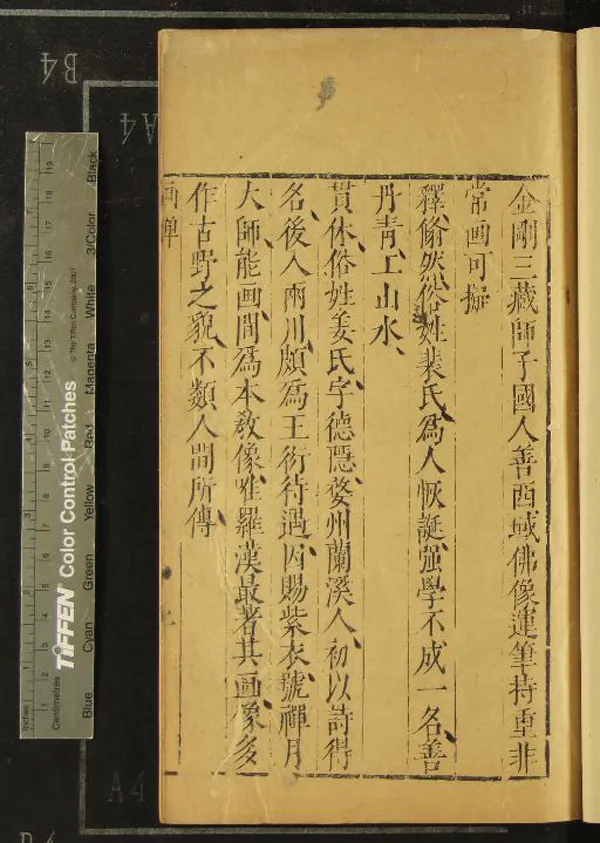 金剛三藏師子國人善西域佛像運筆持重非
常画可擬
釋翛然俗姓裴氏、為人恢誕、强學不成一名、善
丹青、工山水、
貫休、俗姓姜氏、字德隱、婺州蘭溪人、初以詩得
名、後入兩川、頗為王衍待遇、因賜紫衣、號禪月
大師、能画、間為本教像、唯羅漢最著、其画像多
作古野之貌、不類人間所傳、
画禪
B4
A4
A4
Inches
Centimetres
TIFFEN Color Control Patches
© The Tiffen Company, 2007
Blue
Cyan
Green
Yellow
Red
Magenta
White
3/Color
Black